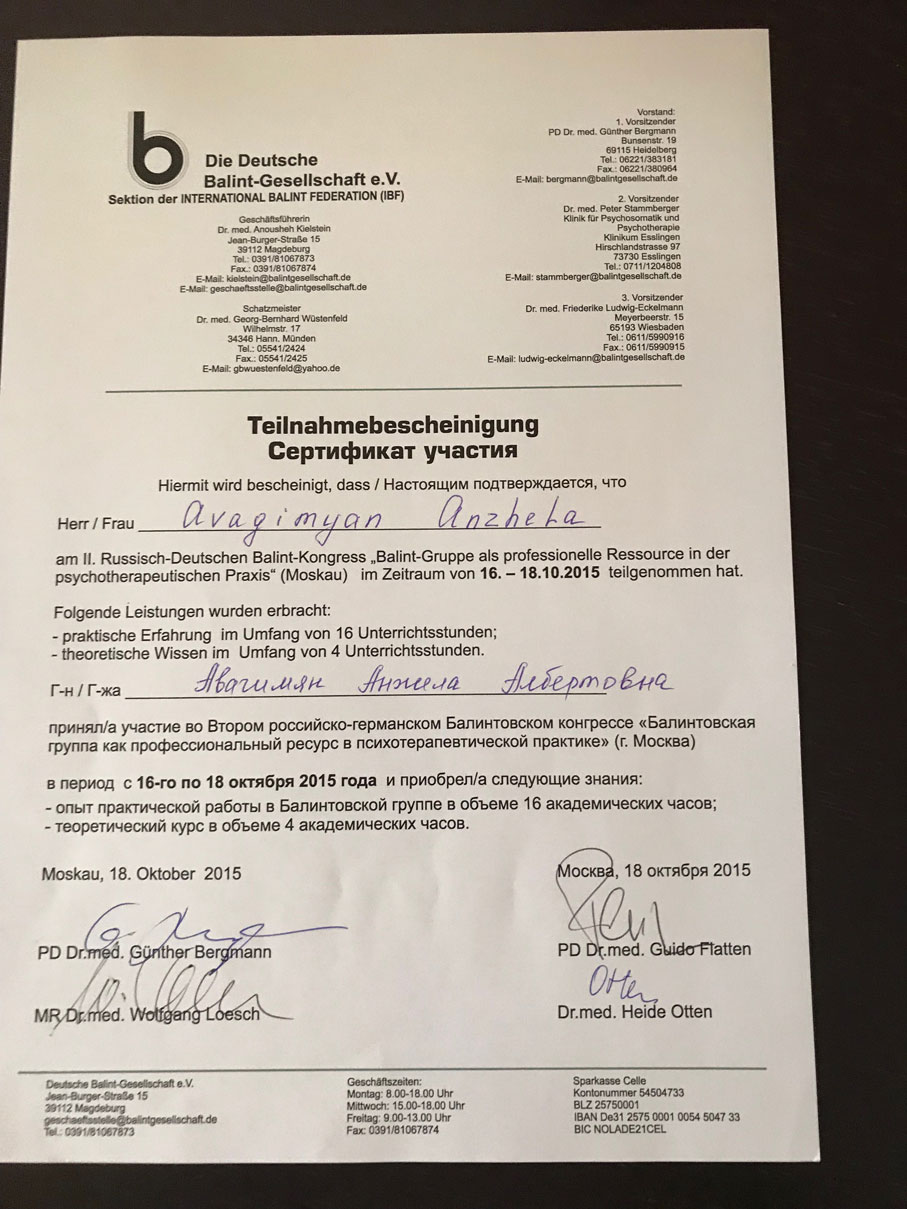 b
Die Deutsche
Balint-Gesellschaft e.V.
Sektion der INTERNATIONAL BALINT FEDERATION (IBF)
Geschäftsführerin
Dr. med. Anousheh Kielstein
Jean-Burger-Straße 15
39112 Magdeburg
Tel.: 0391/81067873
Fax.: 0391/81067874
E-Mail: kielstein@balintgesellschaft.de
E-Mail: geschaeftsstelle@balintgesellschaft.de
Schatzmeister
Dr. med. Georg-Bernhard Wüstenfeld
Wilhelmstr. 17
34346 Hann. Münden
Tel.: 05541/2424
Fax.: 05541/2425
E-Mail: gbwuestenfeld@yahoo.de
Vorstand:
1. Vorsitzender
PD Dr. med. Günther Bergmann
Bunsenstr. 19
69115 Heidelberg
Tel.: 06221/383181
Fax.: 06221/380964
E-Mail: bergmann@balintgesellschaft.de
2. Vorsitzender
Dr. med. Peter Stammberger
Klinik für Psychosomatik und
Psychotherapie
Klinikum Esslingen
Hirschlandstrasse 97
73730 Esslingen
Tel.: 0711/1204808
E-Mail: stammberger@balintgesellschaft.de
3. Vorsitzender
Dr. med. Friederike Ludwig-Eckelmann
Meyerbeerstr. 15
65193 Wiesbaden
Tel.: 0611/5990916
Fax.: 0611/5990915
E-Mail: ludwig-eckelmann@balintgesellschaft.de
Teilnahmebescheinigung
Сертификат участия
Hiermit wird bescheinigt, dass / Настоящим подтверждается, что
Herr / Frau Avagimyan Anzhela
am II. Russisch-Deutschen Balint-Kongress „Balint-Gruppe als professionelle Ressource in der
psychotherapeutischen Praxis“ (Moskau) im Zeitraum von 16. – 18.10.2015 teilgenommen hat.
Folgende Leistungen wurden erbracht:
- praktische Erfahrung im Umfang von 16 Unterrichtsstunden;
- theoretische Wissen im Umfang von 4 Unterrichtsstunden.
Г-н / Г-жа Авагимян Анжела Албертовна
принял/а участие во Втором российско-германском Балинтовском конгрессе «Балинтовская
группа как профессиональный ресурс в психотерапевтической практике» (г. Москва)
в период с 16-го по 18 октября 2015 года и приобрел/а следующие знания:
- опыт практической работы в Балинтовской группе в объеме 16 академических часов;
- теоретический курс в объеме 4 академических часов.
Moskau, 18. Oktober 2015
Москва, 18 октября 2015
PD Dr.med. Günther Bergmann
PD Dr.med. Guido Flatten
Otten
MR Dr.med. Wolfgang Loesch
Dr.med. Heide Otten
Deutsche Balint-Gesellschaft e.V.
Jean-Burger-Straße 15
39112 Magdeburg
geschaeftsstelle@balintgesellschaft.de
Tel.: 0391/81067873
Geschäftszeiten:
Montag: 8.00-18.00 Uhr
Mittwoch: 15.00-18.00 Uhr
Freitag: 9.00-13.00 Uhr
Fax: 0391/81067874
Sparkasse Celle
Kontonummer 54504733
BLZ 25750001
IBAN De31 2575 0001 0054 5047 33
BIC NOLADE21CEL